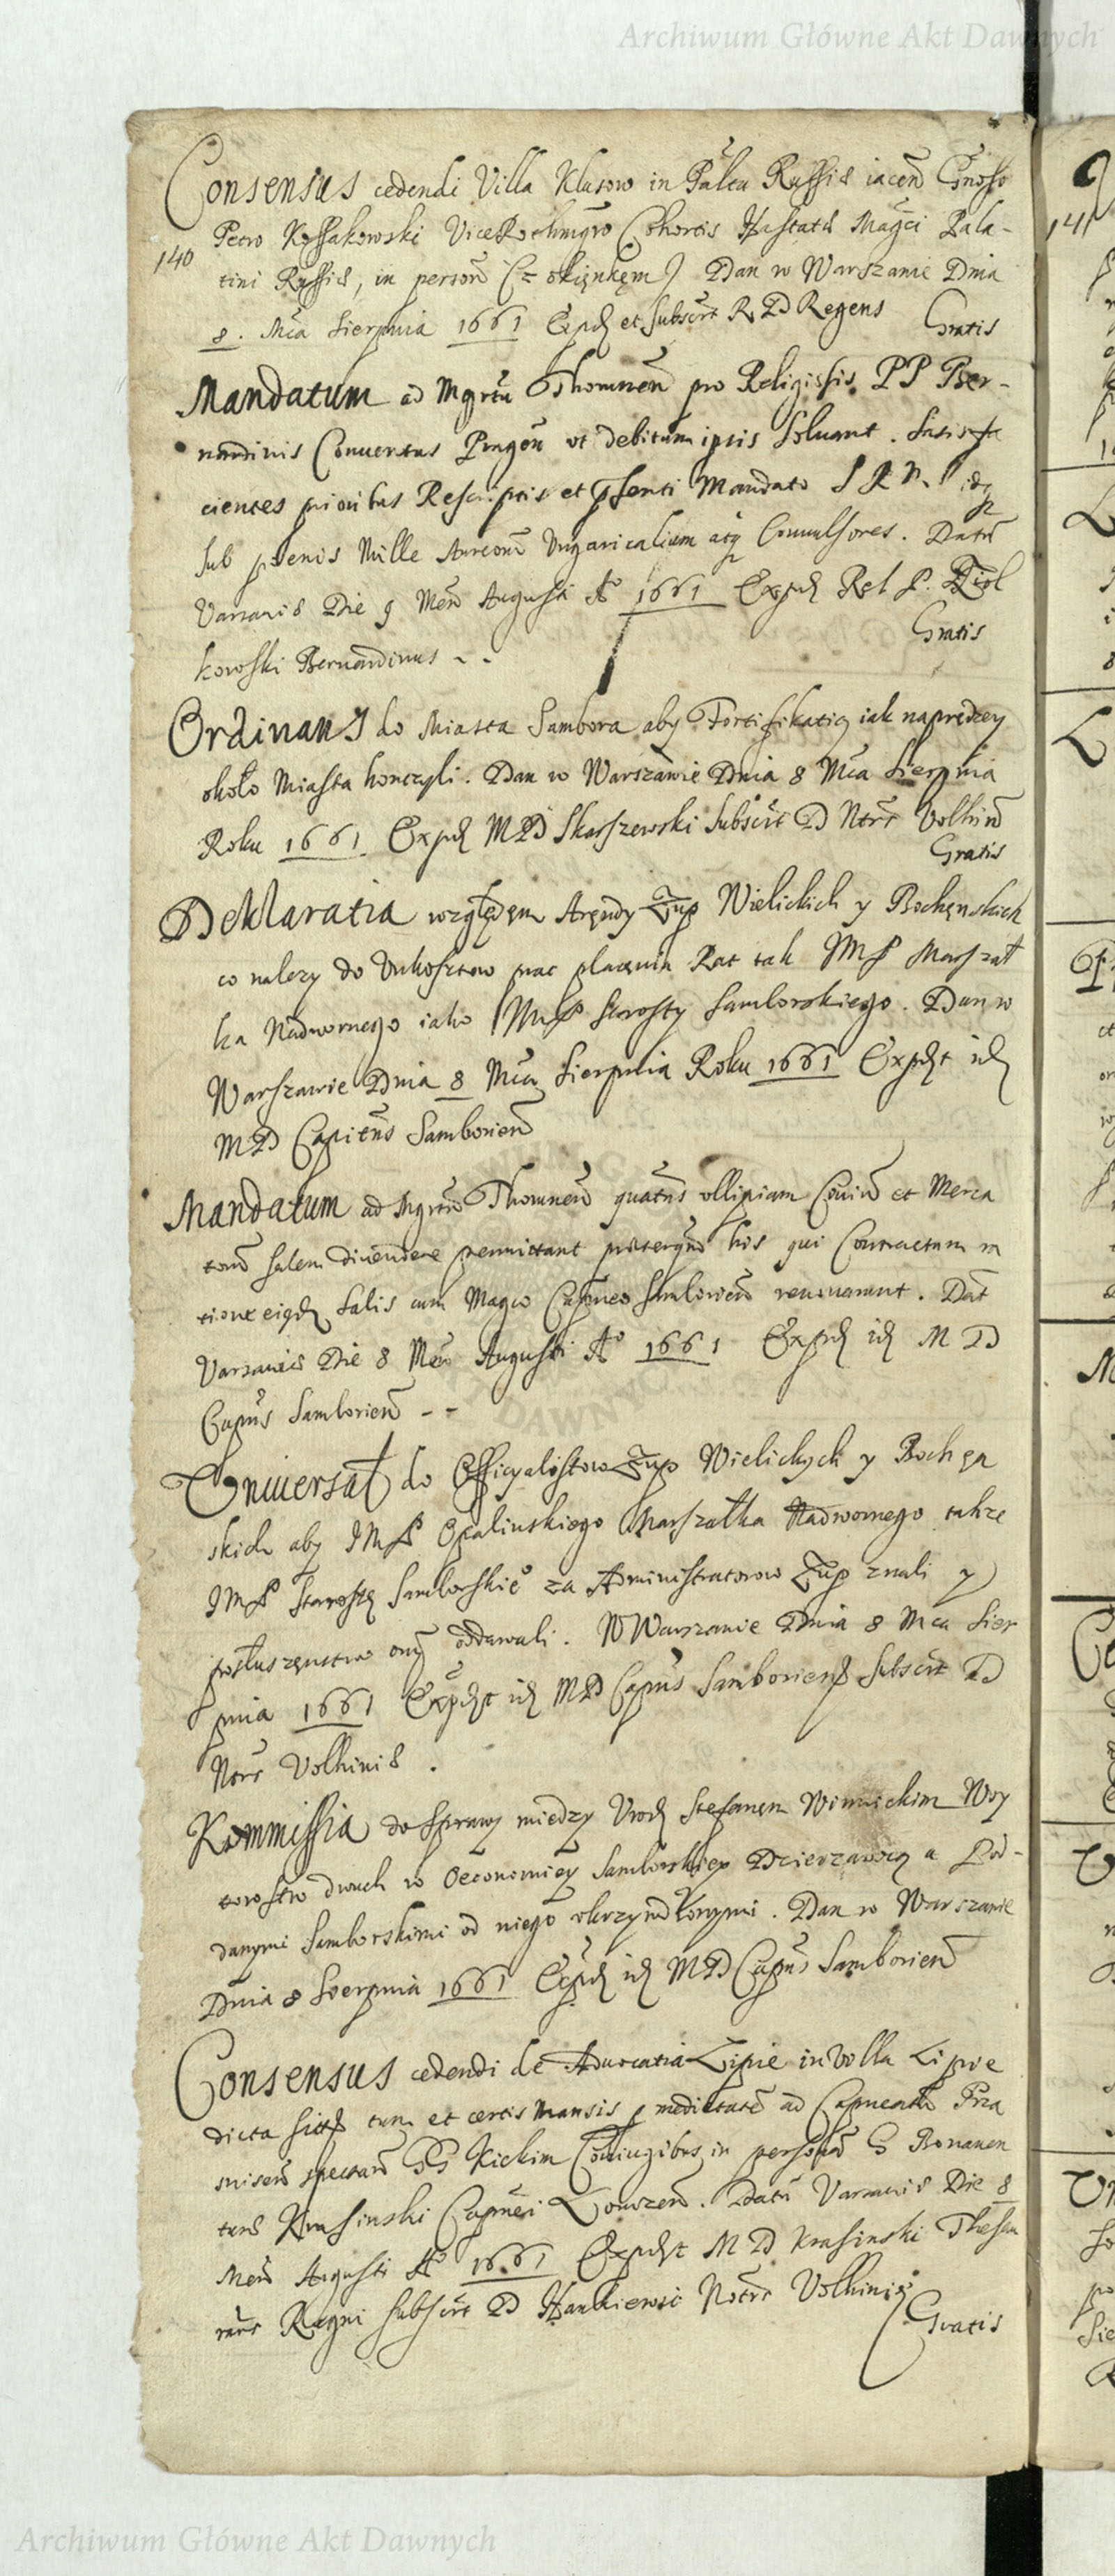 Archiwum Główne Akt Dawnych
Consensus cedendi Villa Klusow in Palatu Russiæ iacen Gnoso
140
Petro Kossakowski ViceRothmgro Cohortis Hastatæ Magci Pala-
tini Russiæ, in person (z okięnkęm) Dan w Warszawie Dnia
8. Mca Sierpnia 1661 Expd et Subscrt R D Regens Gratis
Mandatum ad Mgrtu Thorunen pro Religissis PP Ber-
nardinis Conuentus Pragen ut debitum ipsis soluant. Satisfa
cientes prioribus Rescriptis et psenti Mandato S R M idq
sub pœnis Mille Aureoru Vngaricalium atq Conuulsores. Datu
Varsauiæ Die 9 Men Augusti Ao 1661 Expd Rel P. Ziol
kowski Bernardinus - - Gratis
Ordinans do Miasta Sambora aby Fortifikatią iak naprędzey
około Miasta konczyli. Dan w Warszawie Dnia 8 Mca Sierpnia
Roku 1661 Expd MD Skarszewski Subscrt D Ntrs Volhin
Gratis
Deklaratia względęm Aręndy Żup Wielickich y Bochęnskich
co nalezy do Unkosztow prac płacęnia Rat tak JMP Marszał
ka Nadwornego iako JMP Starosty Samborskiego. Dan w
Warszawie Dnia 8 Mca Sierpnia Roku 1661 Expdt id
MD Capitns Samborien
Mandatum ad Mgrtu Thorunen quatns Ciuiu et Merca
toru salem diuendere permittant præterqua his qui Contractum ra
tione eiqd salis cum Magco Capneo Samborien renouarunt. Dat
Varsauiæ Die 8 Men Augusti Ao 1661 Expd id M D
Capns Samborien - -
Vniuersał do Officyalistow Żup Wielickych y Bochęn
skich aby JMP Opalinskiego Marszałka Nadwornego takze
JMP Starostę Samborskiego za Administratorow Żup znali y
posłuszęnstwo ony oddawali. W Warszawie Dnia 8 Mca Sier
pnia 1661 Expdt id MD Capns Samboriens Subscrt D
Ntrs Volhiniæ.
Kommissia do Sprawy między Urod Stefanęm Winnickim Woy
towstw dwuch w Oeconomięy Samborskięy Dzierzawcą a Pod-
danymi Samborskimi od niego ukrzywdzonymi. Dan w Warszawie
Dnia 8 Sierpnia 1661 Expd id MD Capns Samborien
Consensus cedendi de Aduocatia Lipie in Villa Lipie
dicta sitt tum et certis Mansis p medietate ad Capneatu Prza
snisen spectan GG Kickim Coniugibus in persona G Bonauen
turæ Krasinski Capnei Lomzen. Datu Varsauiæ Die 8
Men Augusti Ao 1661 Expdt M D Krasinski Thesau
rars Regni subscrt D Hankiewic Notrs Volhiniæ
Gratis
Archiwum Główne Akt Dawnych